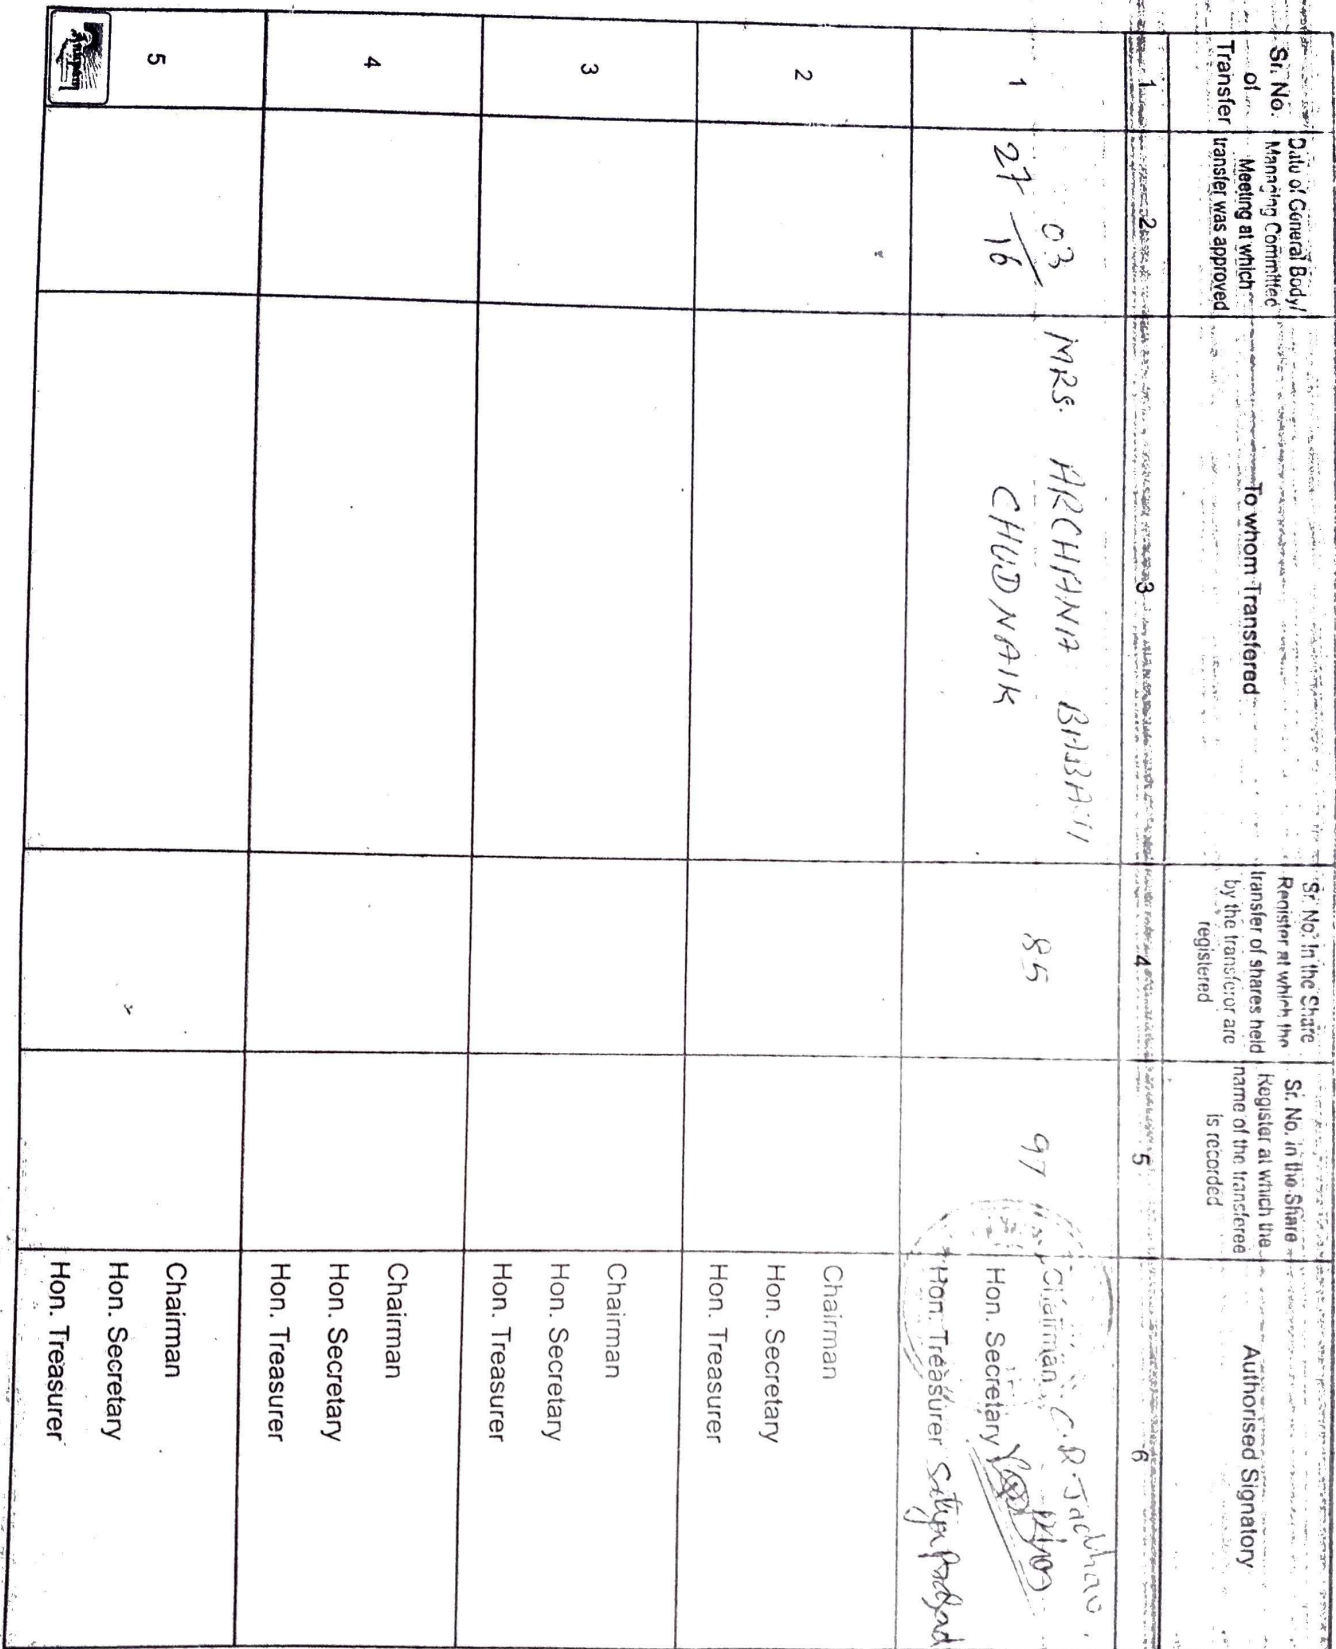 Sr. No.
of
Transfer
Date of General Body/
Managing Committed
Meeting at which
transfer was approved
To whom Transfered
Sr. No. In the Share
Register at which the
transfer of shares held
by the transferor are
registered
Sr. No. in the Share
Register at which the
name of the transferee
is recorded
Authorised Signatory
1 2 3 4 5 6
1
27 03/16
MRS. ARCHANA BABAJI
CHUDNAIK
85
97
Chairman C.R. Jadhav.
Hon. Secretary
Hon. Treasurer
2
Chairman
Hon. Secretary
Hon. Treasurer
3
Chairman
Hon. Secretary
Hon. Treasurer
4
Chairman
Hon. Secretary
Hon. Treasurer
5
Chairman
Hon. Secretary
Hon. Treasurer